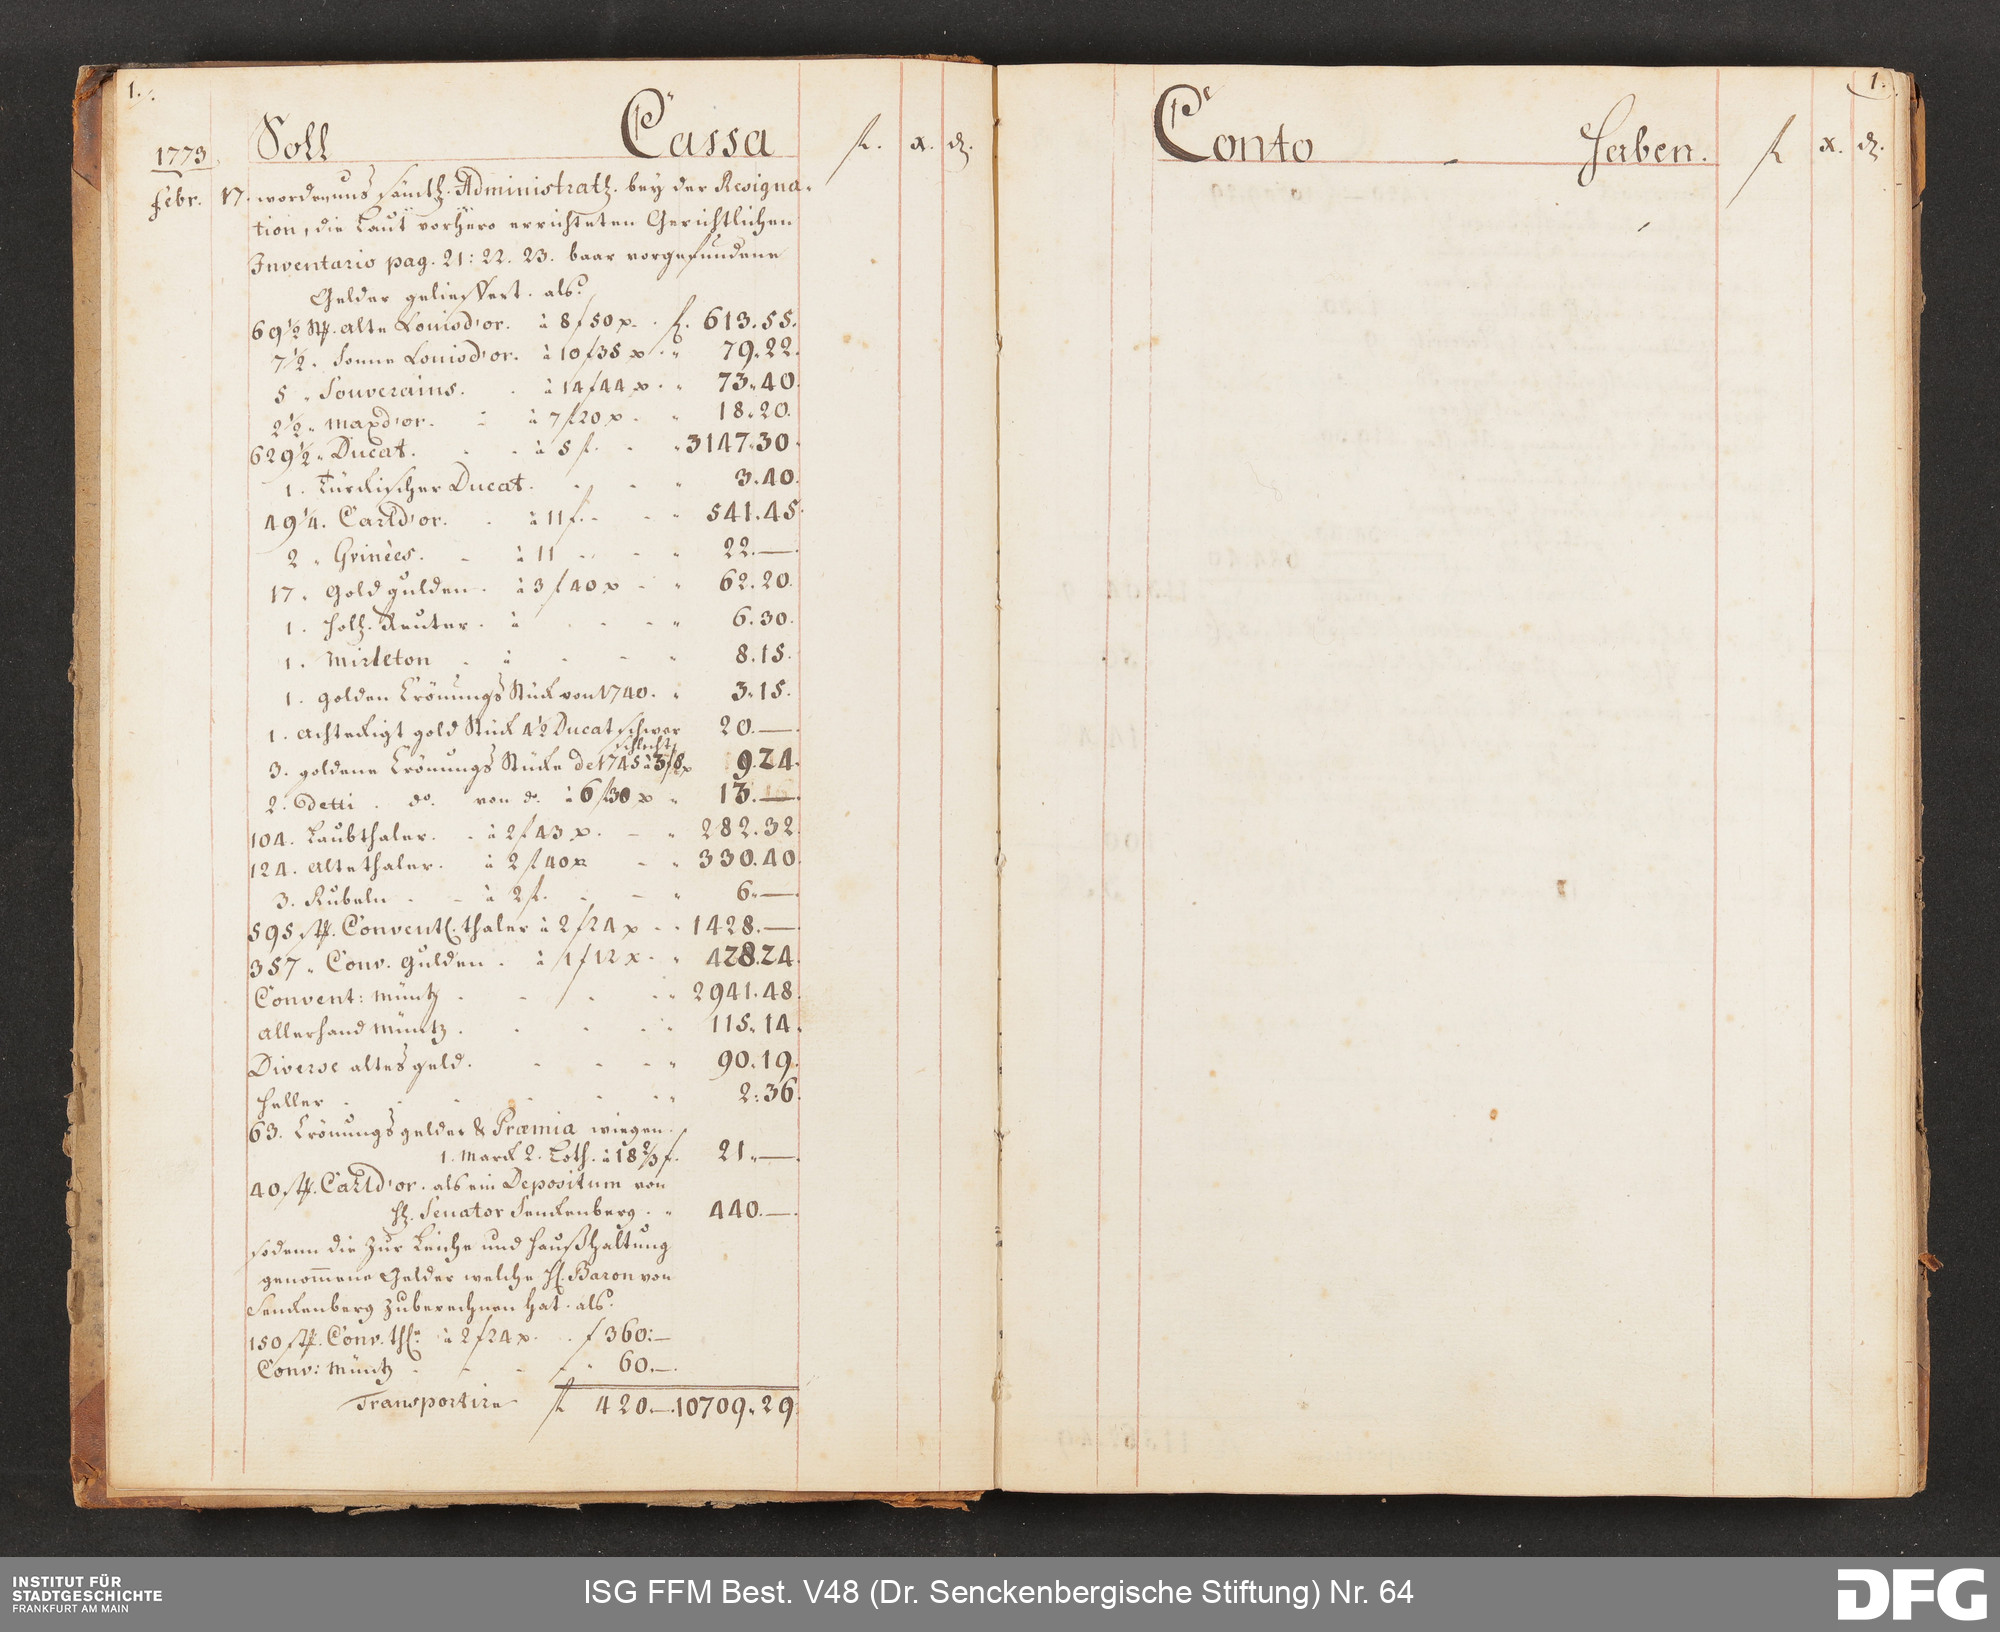 1.
1773
Soll Cassa fl. x. d.
Febr. 17. worden uns sämtl. Administratl. bey der Resigna-
tion, die Laut vorhero errichteten Gerichtlichen
Inventario pag. 21: 22. 23. baar vorgefundene
Gelder gelieffert. als:
69½ Stk. alte Louisd'or. à 8 f 50 x. f. 613.55.
7½. Sonne Louisd'or. à 10 f 35 x. " 79.22.
5 " Souverains. à 14 f 44 x. " 73.40.
2½ " Maxd'or. à 7 f 20 x. " 18.20.
629½ " Ducat. à 5 f. " 3147.30.
1. Türckischer Ducat. " 3.40.
49¼. Carld'or. à 11 f. " 541.45.
2 " Grinées. à 11 " 22.—.
17. Goldgulden. à 3 f 40 x " 62.20.
1. Holl. Reuter. à " 6.30.
1. Mirleton à " 8.15.
1. golden Crönungs Stück von 1740. " 3.15.
1. achteckigt gold Stück 4½ Ducat schwer 20.—.
schlecht
3. goldene Crönungs Stücke de 1745 à 3 f 8 x 9.24.
2. Detti. do. von do. à 6 f 30 x " 13.—.
104. Laubthaler. à 2 f 43 x. " 282.32.
124. alte thaler. à 2 f 40 x " 330.40.
3. Rubeln à 2 f. " 6.—.
595 Stk. Conventl. thaler à 2 f 24 x " 1428.—.
357 " Conv. Gulden. à 1 f 12 x. " 428.24.
Convent: Müntz " 2941.48.
allerhand Müntz. " 115.14.
Diverse altes geld. " 90.19.
Heller " 2:36.
63. Crönungs gelder & Præmia wiegen.
1. Marck 2. Loth. à 18⅔ f. 21.—.
40 Stk. Carld'or. als ein Depositum von
H. Senator Senckenberg. " 440.—.
sodenn die zur Leiche und Haußhaltung
genommene Gelder welche H. Baron von
Senckenberg zu berechnen hat. als:
150 Stk. Conv. thl. à 2 f 24 x. f 360:—
Conv: Müntz " 60.—.
Transportire fl 420.—. 10709.29
1.
Conto Haben. fl x. d.
INSTITUT FÜR
STADTGESCHICHTE
FRANKFURT AM MAIN
ISG FFM Best. V48 (Dr. Senckenbergische Stiftung) Nr. 64
DFG